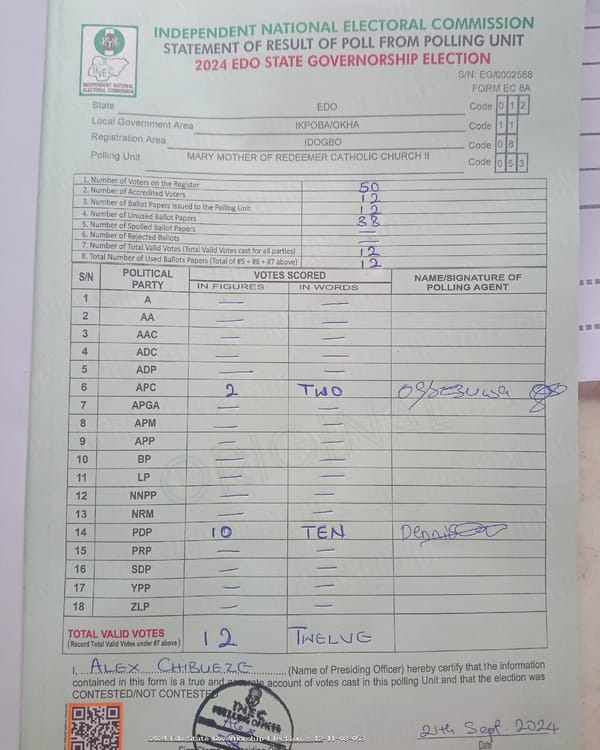 INDEPENDENT NATIONAL ELECTORAL COMMISSION
STATEMENT OF RESULT OF POLL FROM POLLING UNIT
2024 EDO STATE GOVERNORSHIP ELECTION
INEC
INDEPENDENT NATIONAL
ELECTORAL COMMISSION
S/N: EG/0002568
FORM EC 8A
State EDO Code 0 1 2
Local Government Area IKPOBA/OKHA Code 1 1
Registration Area IDOGBO Code 0 8
Polling Unit MARY MOTHER OF REDEEMER CATHOLIC CHURCH II Code 0 5 3
1. Number of Voters on the Register 50
2. Number of Accredited Voters 12
3. Number of Ballot Papers Issued to the Polling Unit 12
4. Number of Unused Ballot Papers 38
5. Number of Spoiled Ballot Papers —
6. Number of Rejected Ballots —
7. Number of Total Valid Votes (Total Valid Votes cast for all parties) 12
8. Total Number of Used Ballots Papers (Total of #5 + #6 + #7 above) 12
S/N POLITICAL PARTY VOTES SCORED NAME/SIGNATURE OF POLLING AGENT
IN FIGURES IN WORDS
1 A — —
2 AA — —
3 AAC — —
4 ADC — —
5 ADP — —
6 APC 2 TWO
7 APGA — —
8 APM — —
9 APP — —
10 BP — —
11 LP — —
12 NNPP — —
13 NRM — —
14 PDP 10 TEN Dennis
15 PRP — —
16 SDP — —
17 YPP — —
18 ZLP — —
ORIGINAL
TOTAL VALID VOTES 12 TWELVE
(Record Total Valid Votes under #7 above)
I, ALEX CHIBUEZE (Name of Presiding Officer) hereby certify that the information
contained in this form is a true and accurate account of votes cast in this polling Unit and that the election was
CONTESTED/NOT CONTESTED
INEC
21th Sept. 2024
2024 Edo State Governorship Election - 12-11-08-053
Date